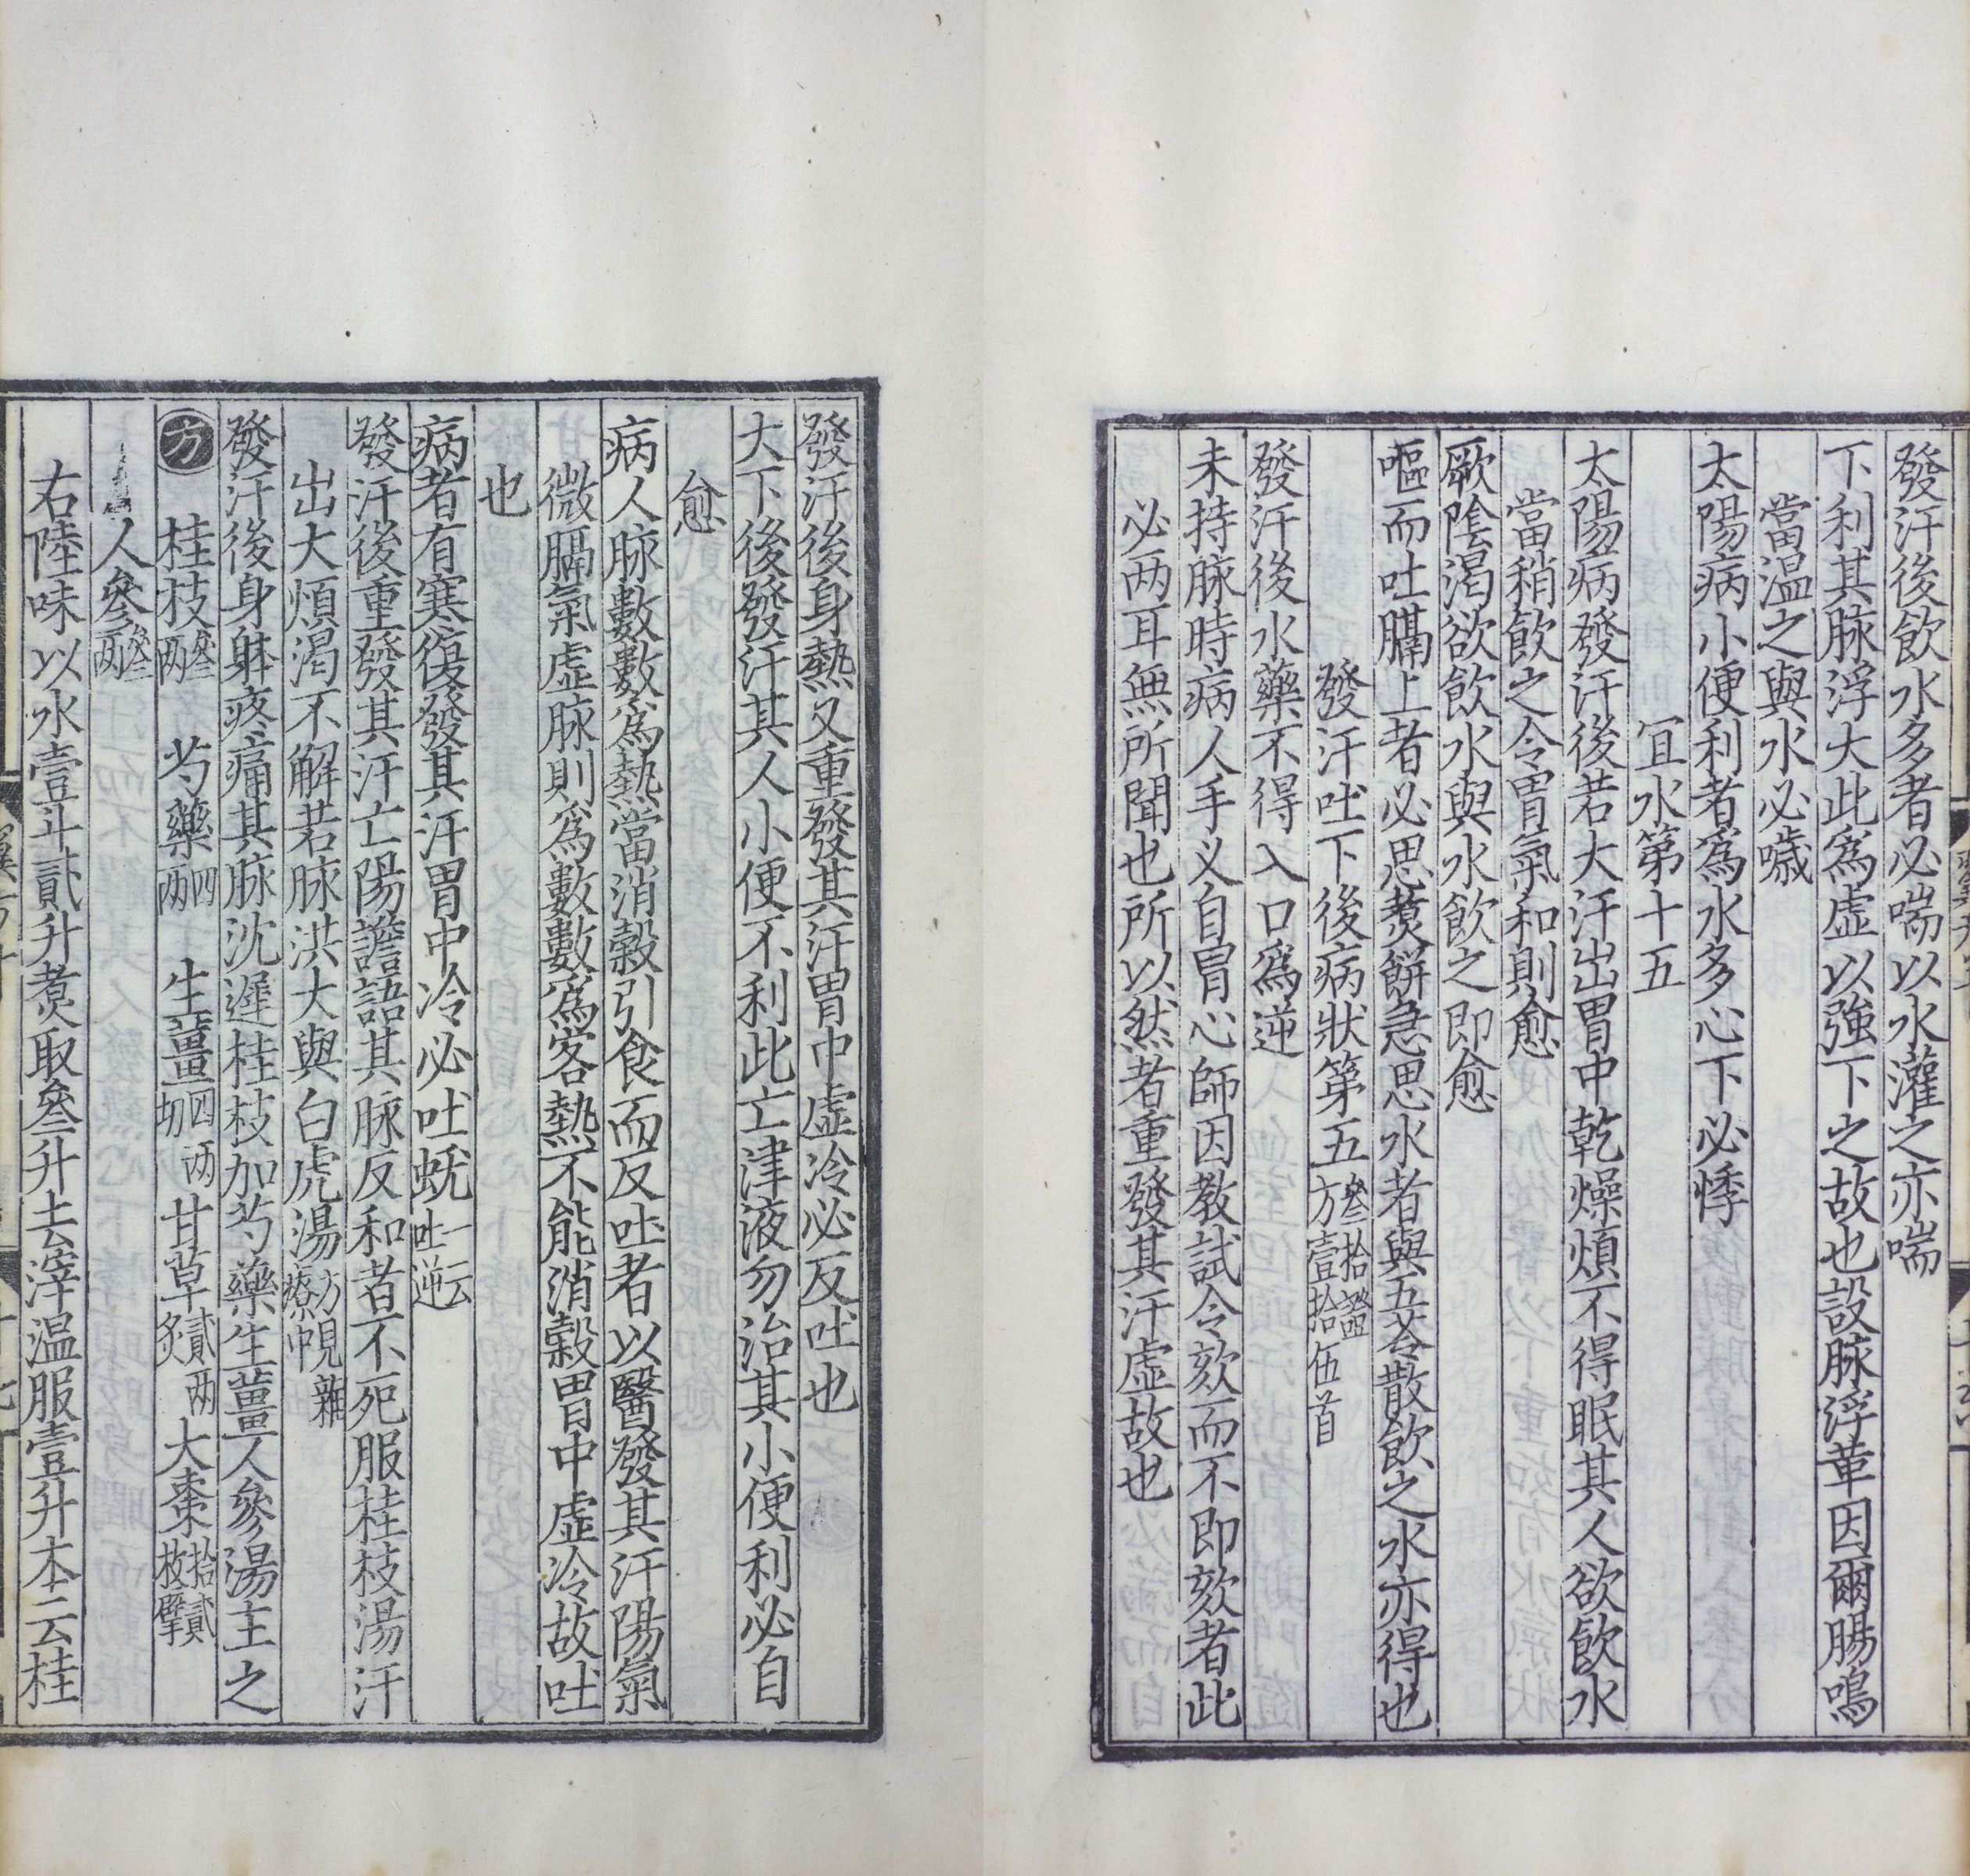 發汗後飲水多者必喘以水灌之亦喘
下利其脉浮大此爲虛以強下之故也設脉浮革因爾腸鳴
當温之與水必噦
太陽病小便利者爲水多心下必悸
冝水第十五
太陽病發汗後若大汗出胃中乾燥煩不得眠其人欲飲水
當稍飲之令胃氣和則愈
厥陰渴欲飲水與水飲之即愈
嘔而吐膈上者必思煑餅急思水者與五苓散飲之水亦得也
發汗吐下後病狀第五叁拾證方壹拾伍首
發汗後水藥不得入口爲逆
未持脉時病人手义自冒心師因教試令欬而不即欬者此
必两耳無所聞也所以然者重發其汗虛故也
發汗後身熱又重發其汗胃中虛冷必反吐也
大下後發汗其人小便不利此亡津液勿治其小便利必自
愈
病人脉數數爲熱當消穀引食而反吐者以醫發其汗陽氣
微膈氣虛脉則爲數數爲客熱不能消穀胃中虛冷故吐
也
病者有寒復發其汗胃中冷必吐蚘一云吐逆
發汗後重發其汗亡陽譫語其脉反和者不死服桂枝湯汗
出大煩渴不解若脉洪大與白虎湯方見雜療中
發汗後身躰疼痛其脉沈遲桂枝加芍藥生薑人參湯主之
方 桂枝叁两 芍藥四两 生薑四两切 甘草貳两炙 大棗拾貳枚擘
人參叁两
右陸味以水壹斗貳升煑取叁升去滓温服壹升本云桂